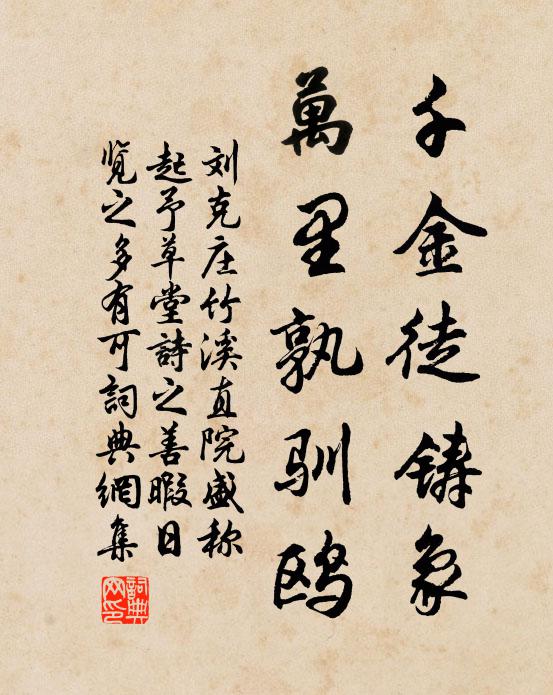 千金徒铸象
萬里孰驯鸥
刘克庄竹溪直院盛称
起予草堂詩之善暇日
览之多有可詞典網集
詞典網印